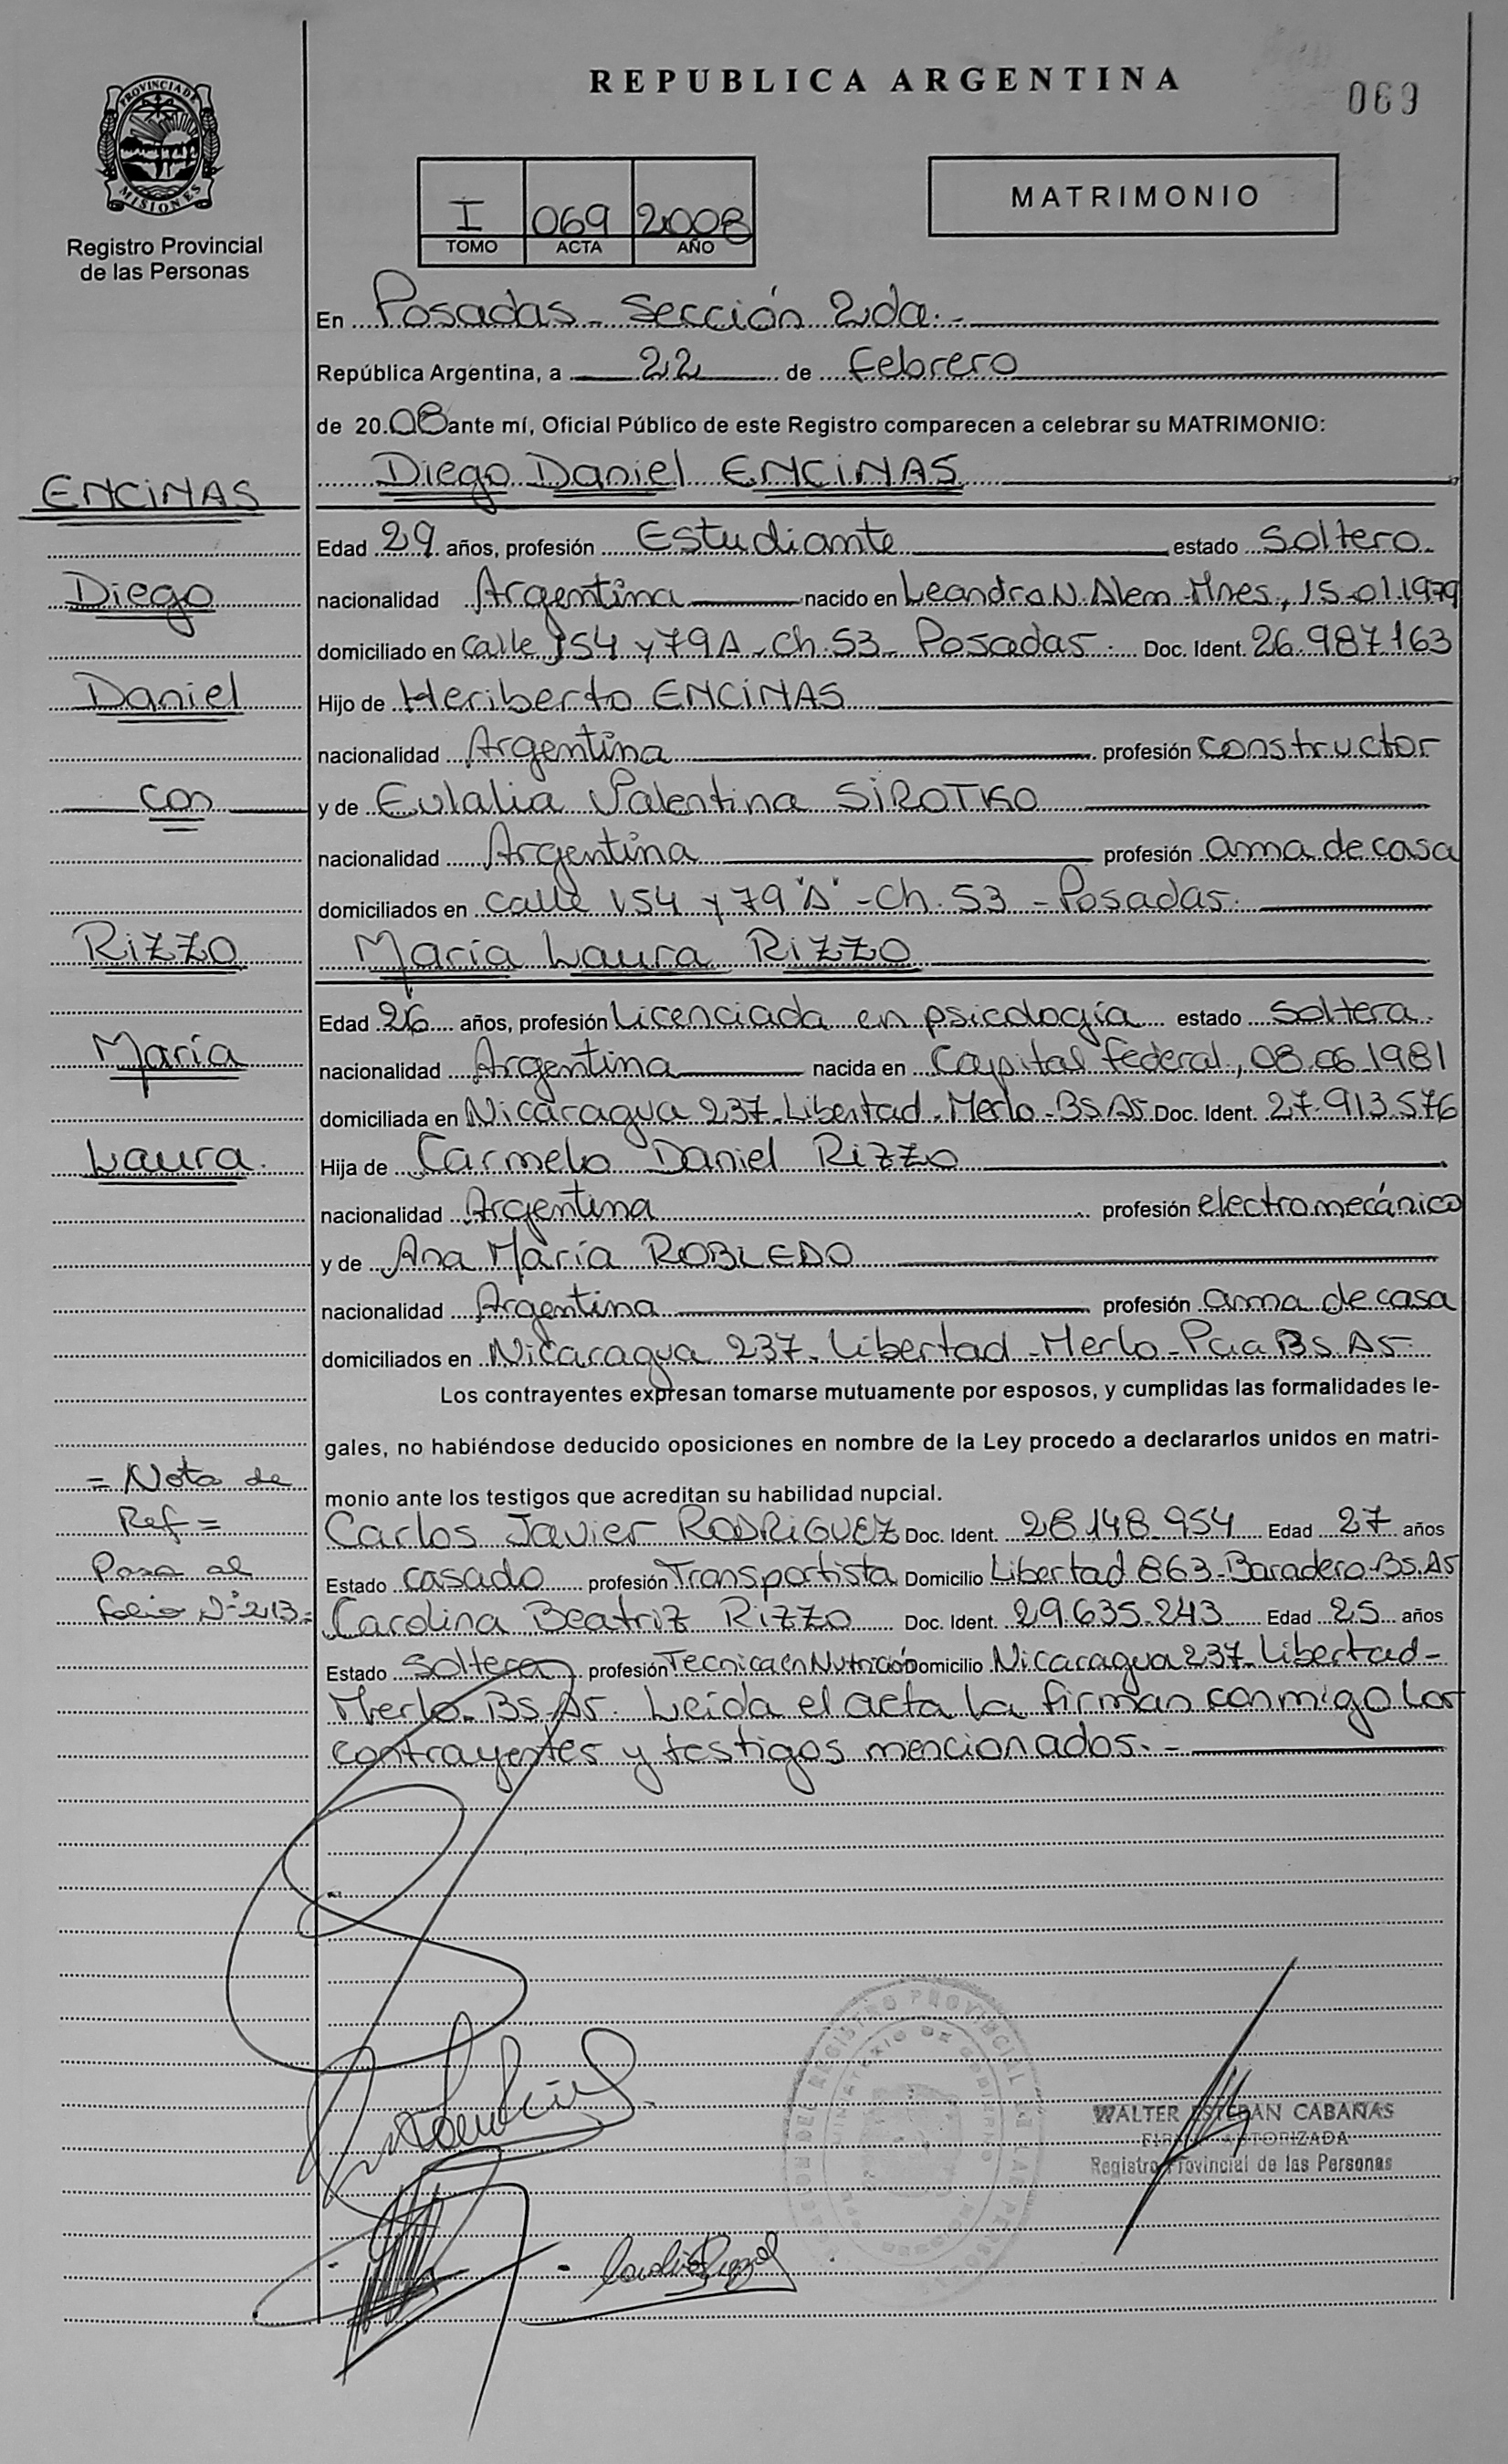 REPUBLICA ARGENTINA
069
PROVINCIA DE
MISIONES
Registro Provincial
de las Personas
I 069 2008
TOMO ACTA AÑO
MATRIMONIO
En Posadas - Sección 2da.-
República Argentina, a 22 de febrero
de 2008 ante mí, Oficial Público de este Registro comparecen a celebrar su MATRIMONIO:
Diego Daniel ENCINAS
Edad 29 años, profesión Estudiante estado Soltero.
nacionalidad Argentina nacido en Leandro N. Alem - Mnes, 15-01.1979
domiciliado en calle 154 y 79A - Ch. 53 - Posadas. Doc. Ident. 26.987163
Hijo de Heriberto ENCINAS
nacionalidad Argentina profesión constructor
y de Eulalia Valentina SIROTKO
nacionalidad Argentina profesión ama de casa
domiciliados en calle 154 y 79 "A" - Ch. 53 - Posadas.
María Laura RIZZO
Edad 26 años, profesión Licenciada en psicología estado Soltera.
nacionalidad Argentina nacida en Capital Federal, 08.06.1981
domiciliada en Nicaragua 237 - Libertad - Merlo - Bs. As. Doc. Ident. 27.913.576
Hija de Carmelo Daniel RIZZO
nacionalidad Argentina profesión electromecánico
y de Ana María ROBLEDO
nacionalidad Argentina profesión ama de casa
domiciliados en Nicaragua 237 - Libertad - Merlo - Pcia Bs. As.
Los contrayentes expresan tomarse mutuamente por esposos, y cumplidas las formalidades le-
gales, no habiéndose deducido oposiciones en nombre de la Ley procedo a declararlos unidos en matri-
monio ante los testigos que acreditan su habilidad nupcial.
Carlos Javier RODRIGUEZ Doc. Ident. 28.148.954 Edad 27 años
Estado casado profesión Transportista Domicilio Libertad 863 - Baradero - Bs. As
Carolina Beatriz RIZZO Doc. Ident. 29.635.243 Edad 25 años
Estado Soltera profesión Tecnica en Nutrición Domicilio Nicaragua 237 - Libertad -
Merlo - Bs. As. Leída el acta la firman conmigo los
contrayentes y testigos mencionados.-
ENCINAS
Diego
Daniel
con
RIZZO
María
Laura.
= Nota de
Ref =
Pasa al
folio N° 213 =
WALTER ESTEBAN CABAÑAS
FIRMA AUTORIZADA
Registro Provincial de las Personas